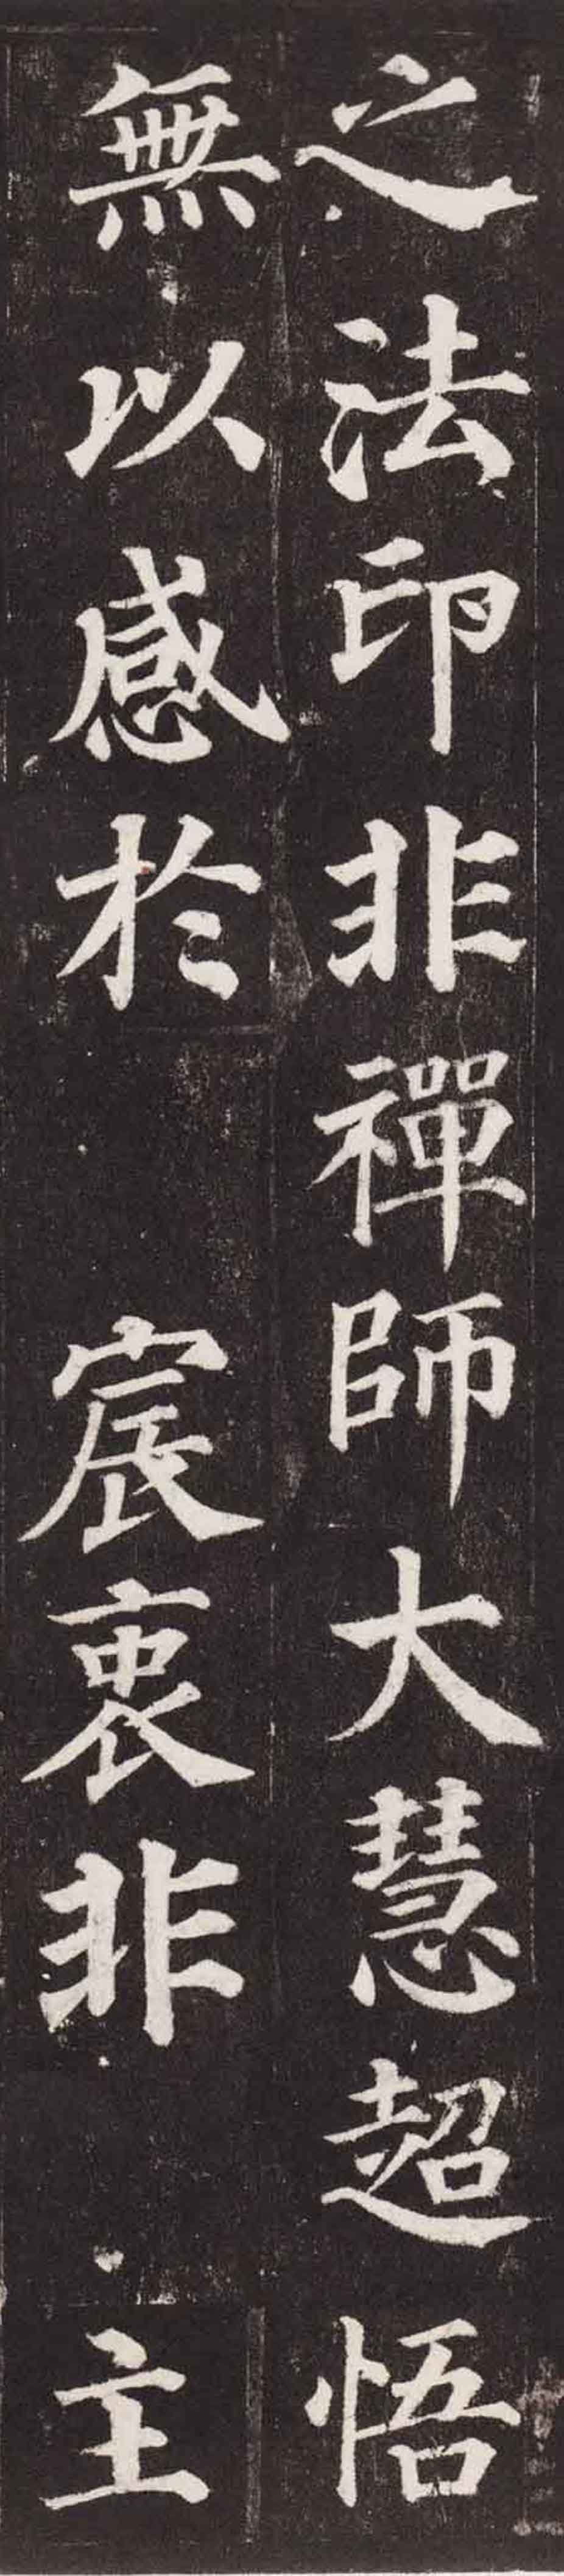 之法印非禪師大慧超悟
無以感於宸衷非主